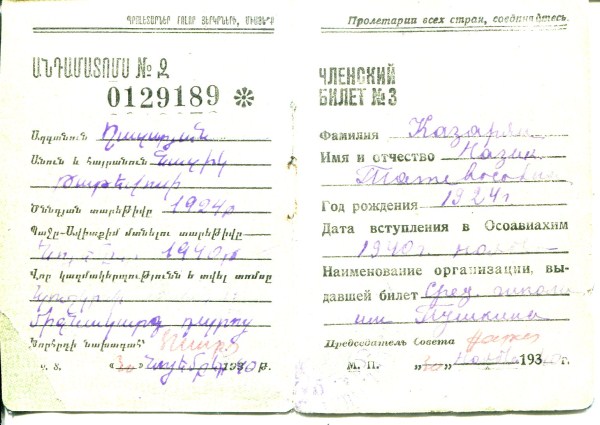 ՊՐՈԼԵՏԱՐՆԵՐ ԲՈԼՈՐ ՅԵՐԿՐՆԵՐԻ, ՄԻԱՑԵՔ
ԱՆԴԱՄԱՏՈՄՍ №
0129189 ✻
Ազգանուն Ղազարյան
Անուն և հայրանուն Նազիկ
Թադևոսի
Ծննդյան տարեթիվը 1924թ
մտնելու տարեթիվը
1940թ
Վոր կազմակերպությունն ե տվել տոմսը
Միջնակարգ դպրոց
Խորհրդի նախագահ
Կ. Տ. «30» Նոյեմբեր 1940 թ.
Пролетарии всех стран, соединяйтесь.
ЧЛЕНСКИЙ
БИЛЕТ №3
Фамилия Казарян
Имя и отчество Назик
Татевосовна
Год рождения 1924г
Дата вступления в Осоавиахим
1940г. нояб
Наименование организации, вы-
давшей билет Сред. школа
им Пушкина
Председатель Совета
М. П. «30» Нояб 193 г.